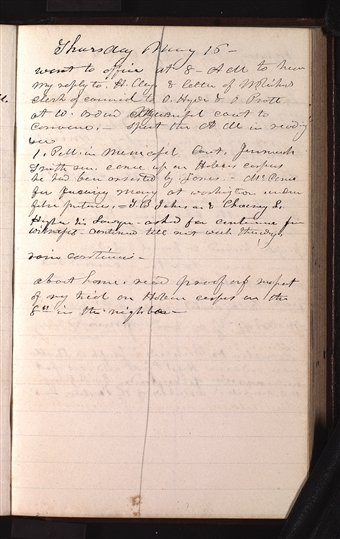 Thursday, May 16 —
went to office at 8 - A M to hear
my reply to. H. Clay & letter of W Richards
clerk of council to O. Hyde & O. Pratt
at 10. court to
convene. — Spent the A M in reading
law
1. P.M. in Municipal Court. Jeremiah
Smith sen. came up on Habeas corpus
he had been arrested by Jones. -
for money at washington under
false pretences. — T. B Johnson & Chauncy L.
Higbee asked for continuance for
witnesses - continued till next week thursday,
rain continues —
about home. read proof of report
of my trial on Habeas corpus on the
8th in the neighbor —